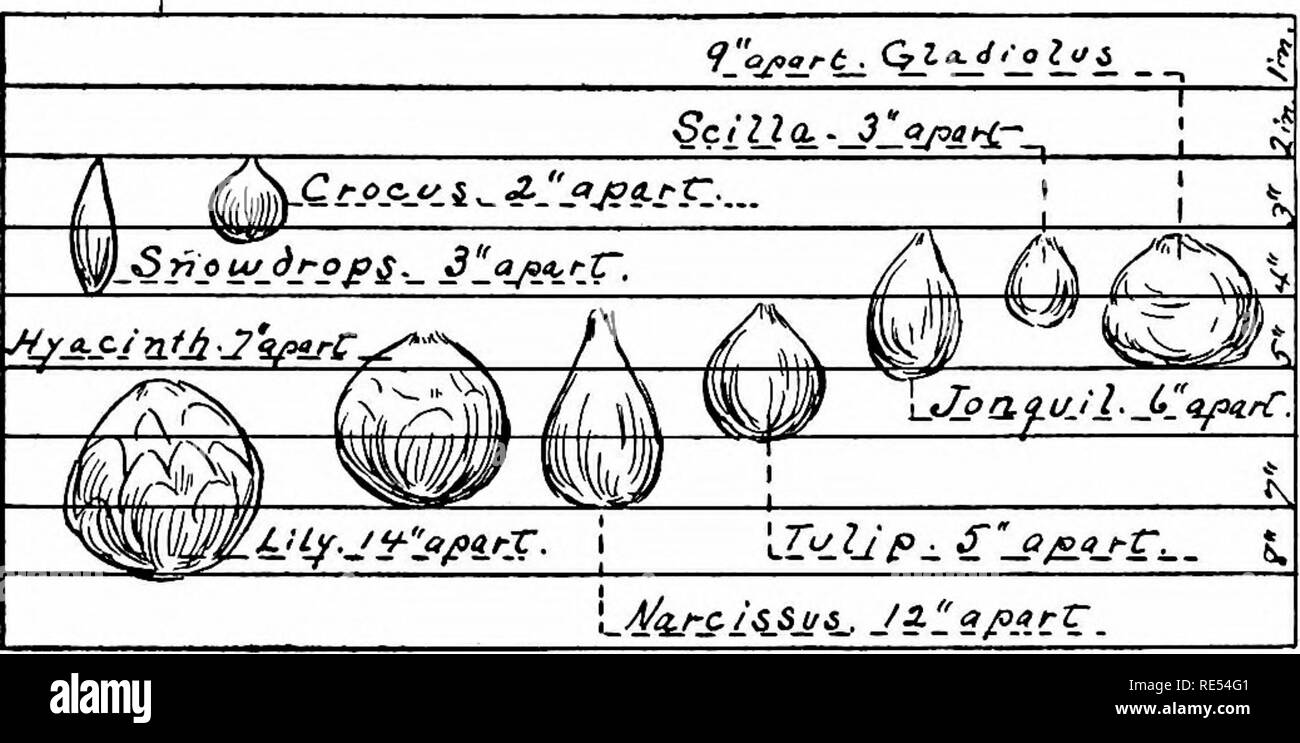 9" apart. Gladiolus
1 in.
Scilla - 3" apart
2 in.
Crocus. 2" apart....
3"
Snowdrops. 3" apart.
4"
Hyacinth. 7" apart
5"
Jonquil. 6" apart.
7"
Lily. 14" apart.
Tulip. 5" apart.
8"
Narcissus. 12" apart
alamy
alamy
Image ID: RE54G1
www.alamy.com